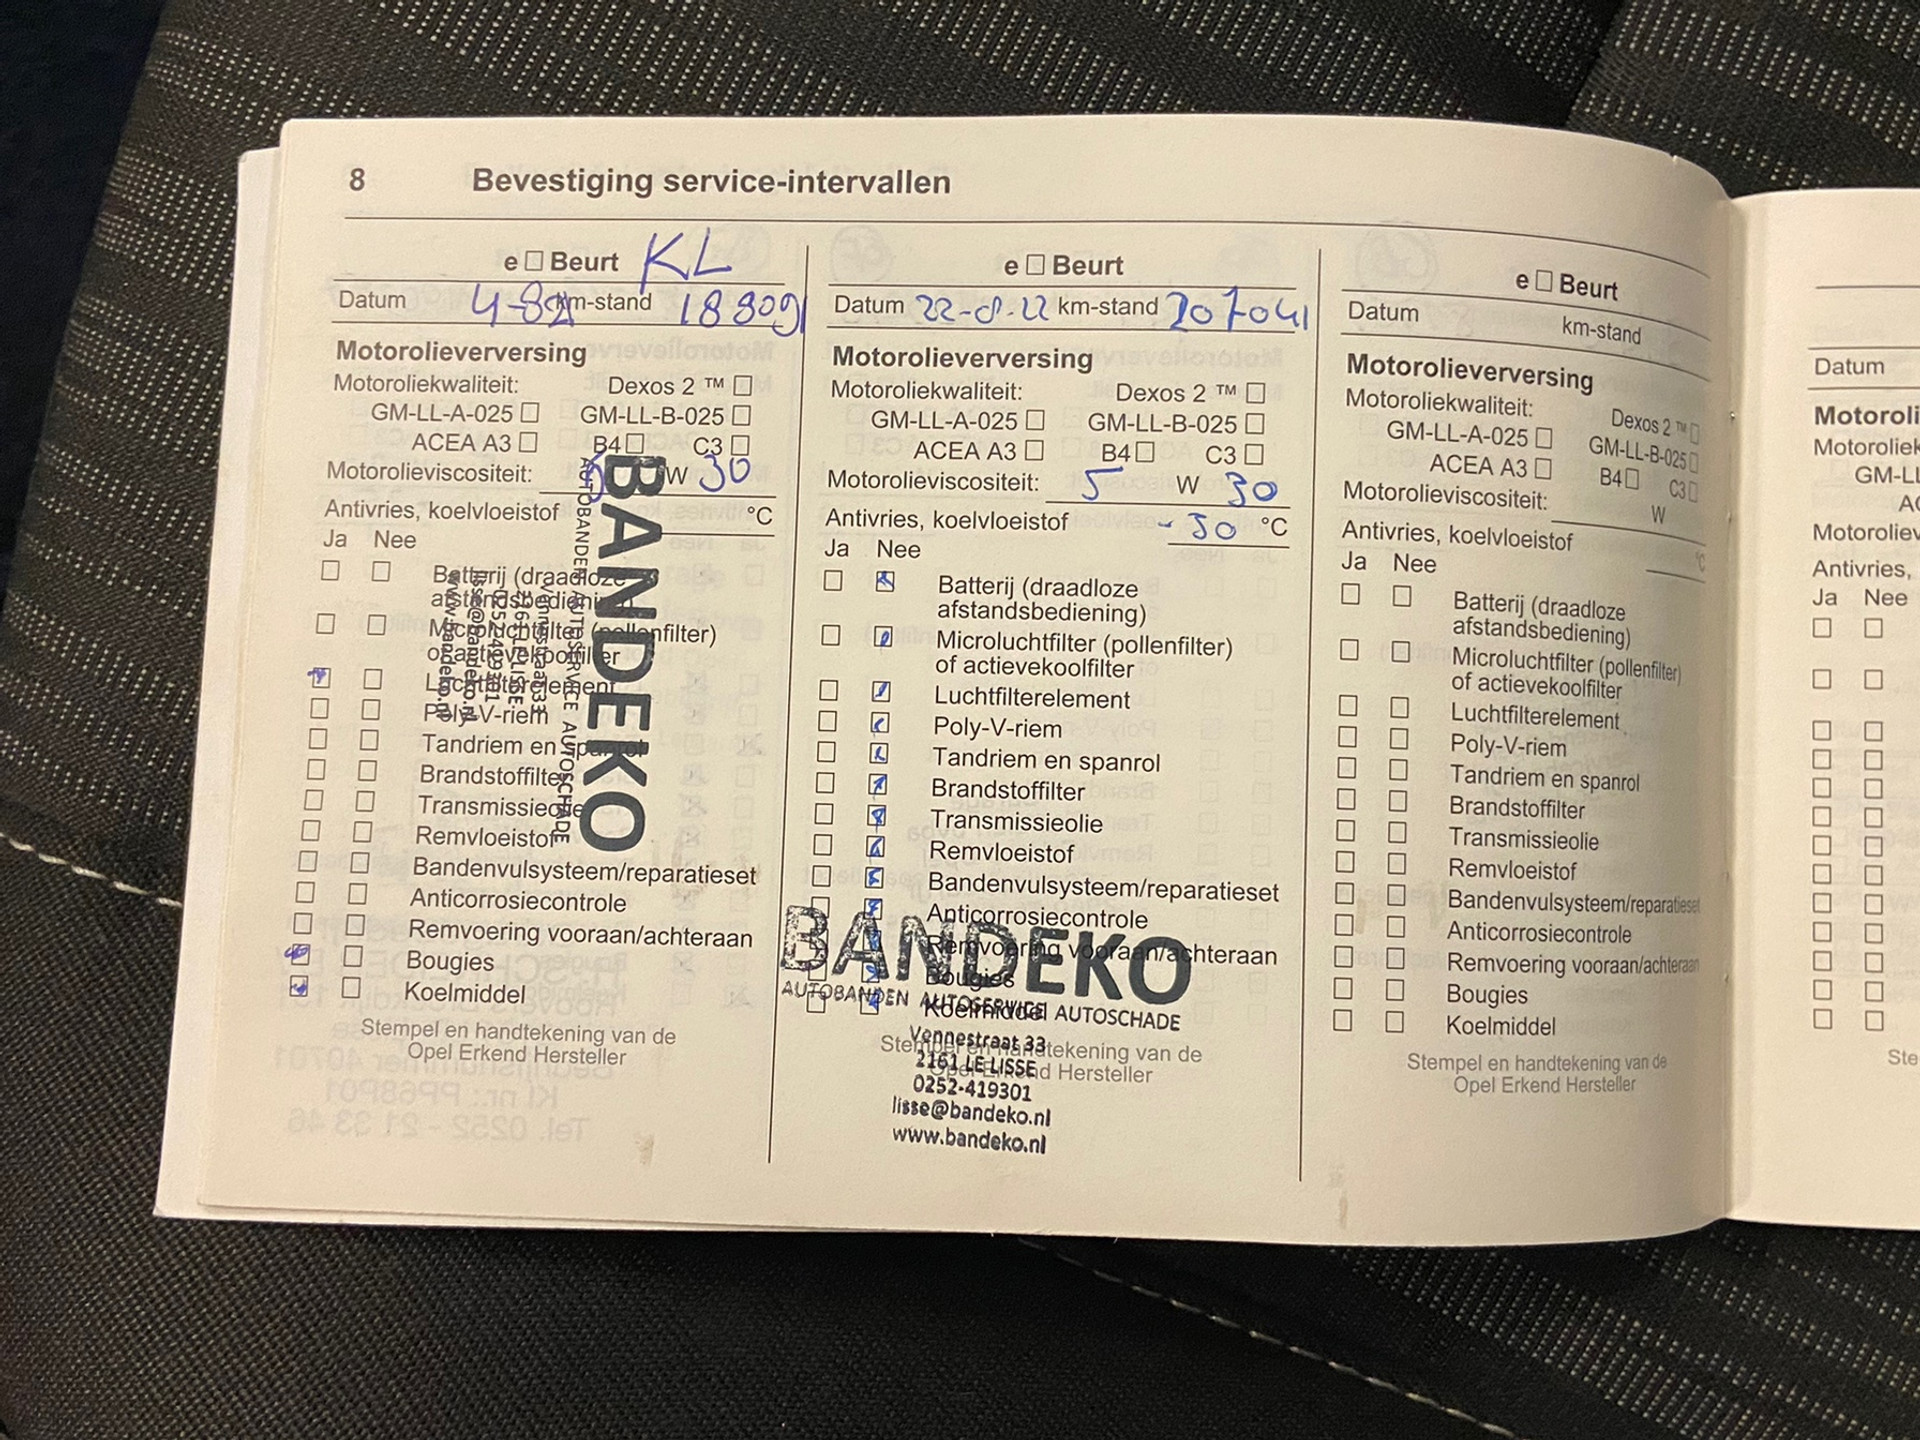 8 Bevestiging service-intervallen
e □ Beurt KL
Datum km-stand 188091
Motorolieverversing
Motoroliekwaliteit: Dexos 2 ™ □
GM-LL-A-025 □ GM-LL-B-025 □
ACEA A3 □ B4 □ C3 □
Motorolieviscositeit: 5 W 30
Antivries, koelvloeistof °C
Ja Nee
Batterij (draadloze
afstandsbediening)
Microluchtfilter (pollenfilter)
of actievekoolfilter
Luchtfilterelement
Poly-V-riem
Tandriem en spanrol
Brandstoffilter
Transmissieolie
Remvloeistof
Bandenvulsysteem/reparatieset
Anticorrosiecontrole
Remvoering vooraan/achteraan
Bougies
Koelmiddel
Stempel en handtekening van de
Opel Erkend Hersteller
BANDEKO
AUTOBANDEN AUTOSERVICE AUTOSCHADE
Vennestraat 33
2161 LE LISSE
0252-419301
lisse@bandeko.nl
www.bandeko.nl
e □ Beurt
Datum 22-8-22 km-stand 207041
Motorolieverversing
Motoroliekwaliteit: Dexos 2 ™ □
GM-LL-A-025 □ GM-LL-B-025 □
ACEA A3 □ B4 □ C3 □
Motorolieviscositeit: 5 W 30
Antivries, koelvloeistof -30 °C
Ja Nee
Batterij (draadloze
afstandsbediening)
Microluchtfilter (pollenfilter)
of actievekoolfilter
Luchtfilterelement
Poly-V-riem
Tandriem en spanrol
Brandstoffilter
Transmissieolie
Remvloeistof
Bandenvulsysteem/reparatieset
Anticorrosiecontrole
Remvoering vooraan/achteraan
Bougies
Koelmiddel
Stempel en handtekening van de
Opel Erkend Hersteller
BANDEKO
AUTOBANDEN AUTOSERVICE AUTOSCHADE
Vennestraat 33
2161 LE LISSE
0252-419301
lisse@bandeko.nl
www.bandeko.nl
e □ Beurt
Datum km-stand
Motorolieverversing
Motoroliekwaliteit: Dexos 2 ™ □
GM-LL-A-025 □ GM-LL-B-025 □
ACEA A3 □ B4 □ C3 □
Motorolieviscositeit: W
Antivries, koelvloeistof °C
Ja Nee
Batterij (draadloze
afstandsbediening)
Microluchtfilter (pollenfilter)
of actievekoolfilter
Luchtfilterelement
Poly-V-riem
Tandriem en spanrol
Brandstoffilter
Transmissieolie
Remvloeistof
Bandenvulsysteem/reparatieset
Anticorrosiecontrole
Remvoering vooraan/achteraan
Bougies
Koelmiddel
Stempel en handtekening van de
Opel Erkend Hersteller
Datum
Motoroli
Motoroliek
GM-LL
AC
Motoroliev
Antivries,
Ja Nee
Ste